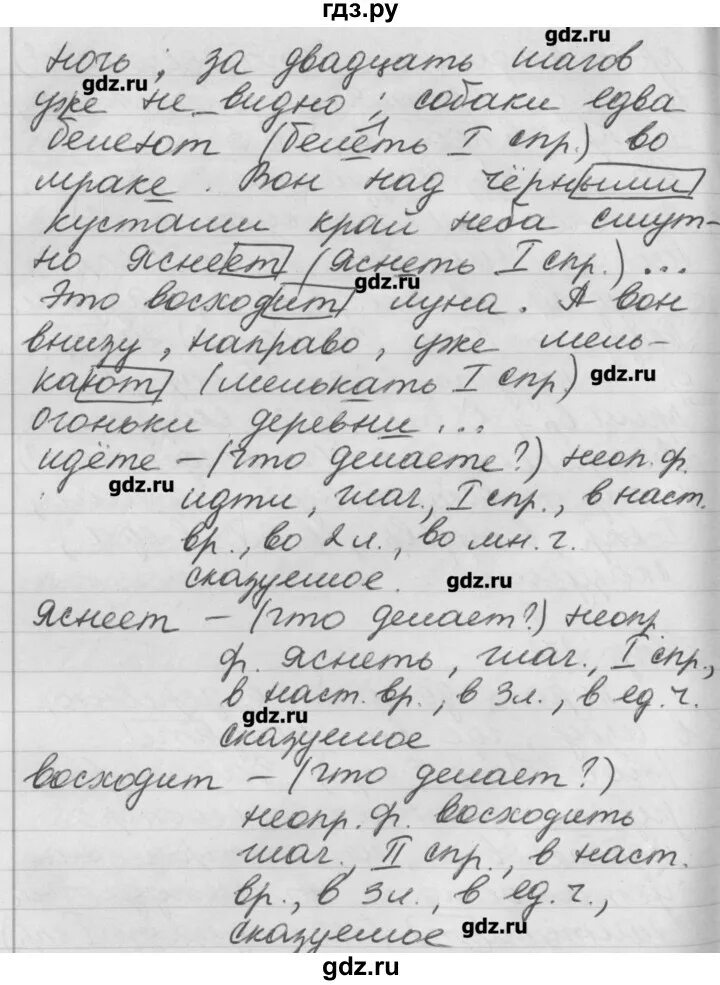 гдз.ру
ночь; за двадцать шагов
gdz.ru
gdz.ru
уже не видно; собаки едва
белеют (белеть I спр.) во
мраке. Вон над чёрными
кустами край неба смут-
но яснеет (яснеть I спр.)...
gdz.ru
Это восходит луна. А вон
внизу, направо, уже мель-
кают (мелькать I спр.) gdz.ru
огоньки деревни...
идёте – (что делаете?) неоп. ф.
gdz.ru
идти, глаг., I спр., в наст.
вр., во 2 л., во мн. ч.
сказуемое. gdz.ru
Яснеет – (что делает?) неопр
ф. яснеть, глаг., I спр.,
в наст. вр., в 3 л., в ед. ч.
gdz.ru
сказуемое
восходит – (что делает?)
неопр. ф. восходить
глаг., II спр., в наст.
вр., в 3 л., в ед. ч.,
сказуемое gdz.ru
gdz.ru